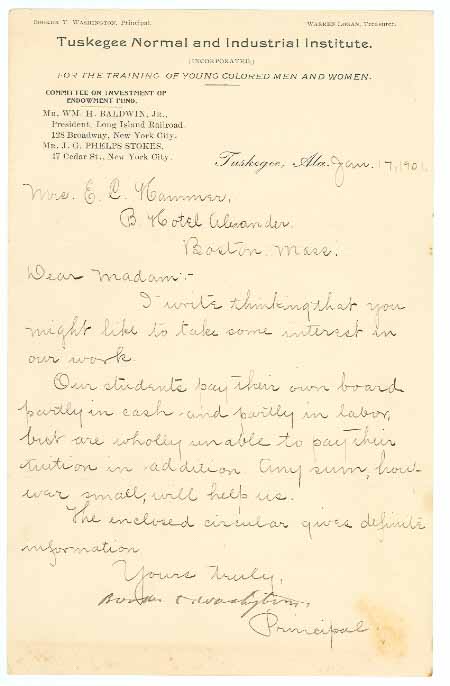 BOOKER T. WASHINGTON, Principal. WARREN LOGAN, Treasurer.
Tuskegee Normal and Industrial Institute.
(INCORPORATED)
FOR THE TRAINING OF YOUNG COLORED MEN AND WOMEN.
COMMITTEE ON INVESTMENT OF
ENDOWMENT FUND.
MR. WM. H. BALDWIN, JR.,
President, Long Island Railroad.
128 Broadway, New York City.
MR. J. G. PHELPS STOKES,
47 Cedar St., New York City.
Tuskegee, Ala. Jan. 17, 1901.
Mrs. E. L. Hammer,
B. Hotel Alexander
Boston Mass.
Dear Madam:-
I write thinking that you
might like to take some interest in
our work.
Our students pay their own board
partly in cash and partly in labor,
but are wholly unable to pay their
tuition in addition. Any sum, how-
ever small, will help us.
The enclosed circular gives definite
information
Yours truly,
Booker T. Washington.
Principal.